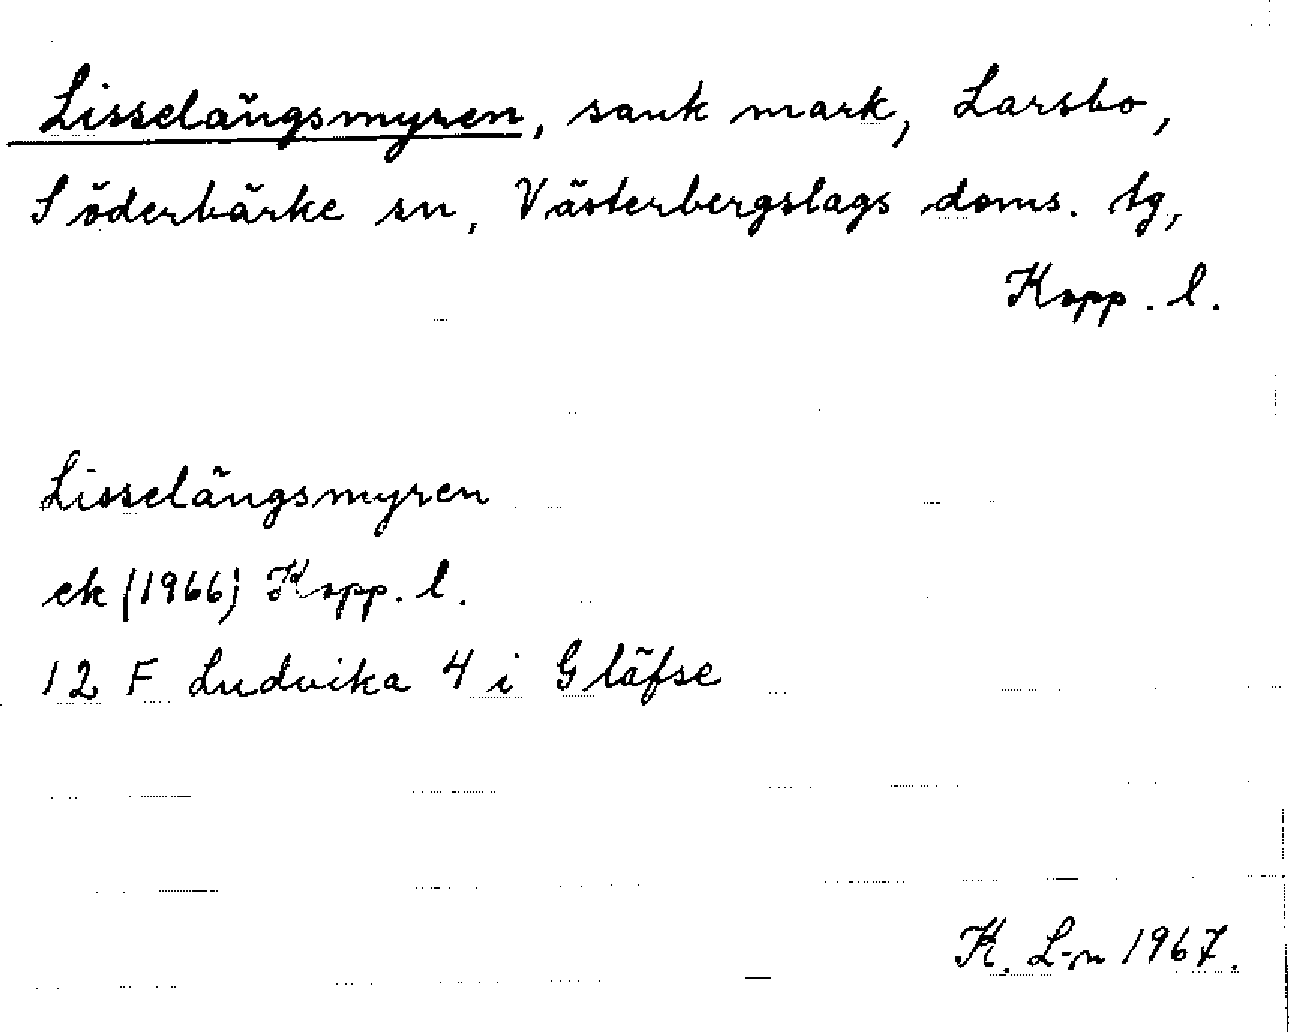 Lisselängsmyren, sank mark, Larsbo,
Söderbärke sn, Västerbergslags doms. tg,
Kopp. l.
Lisselängsmyren
ek (1966) Kopp. l.
12 F Ludvika 4 i Gläfse
K. L-n 1967.